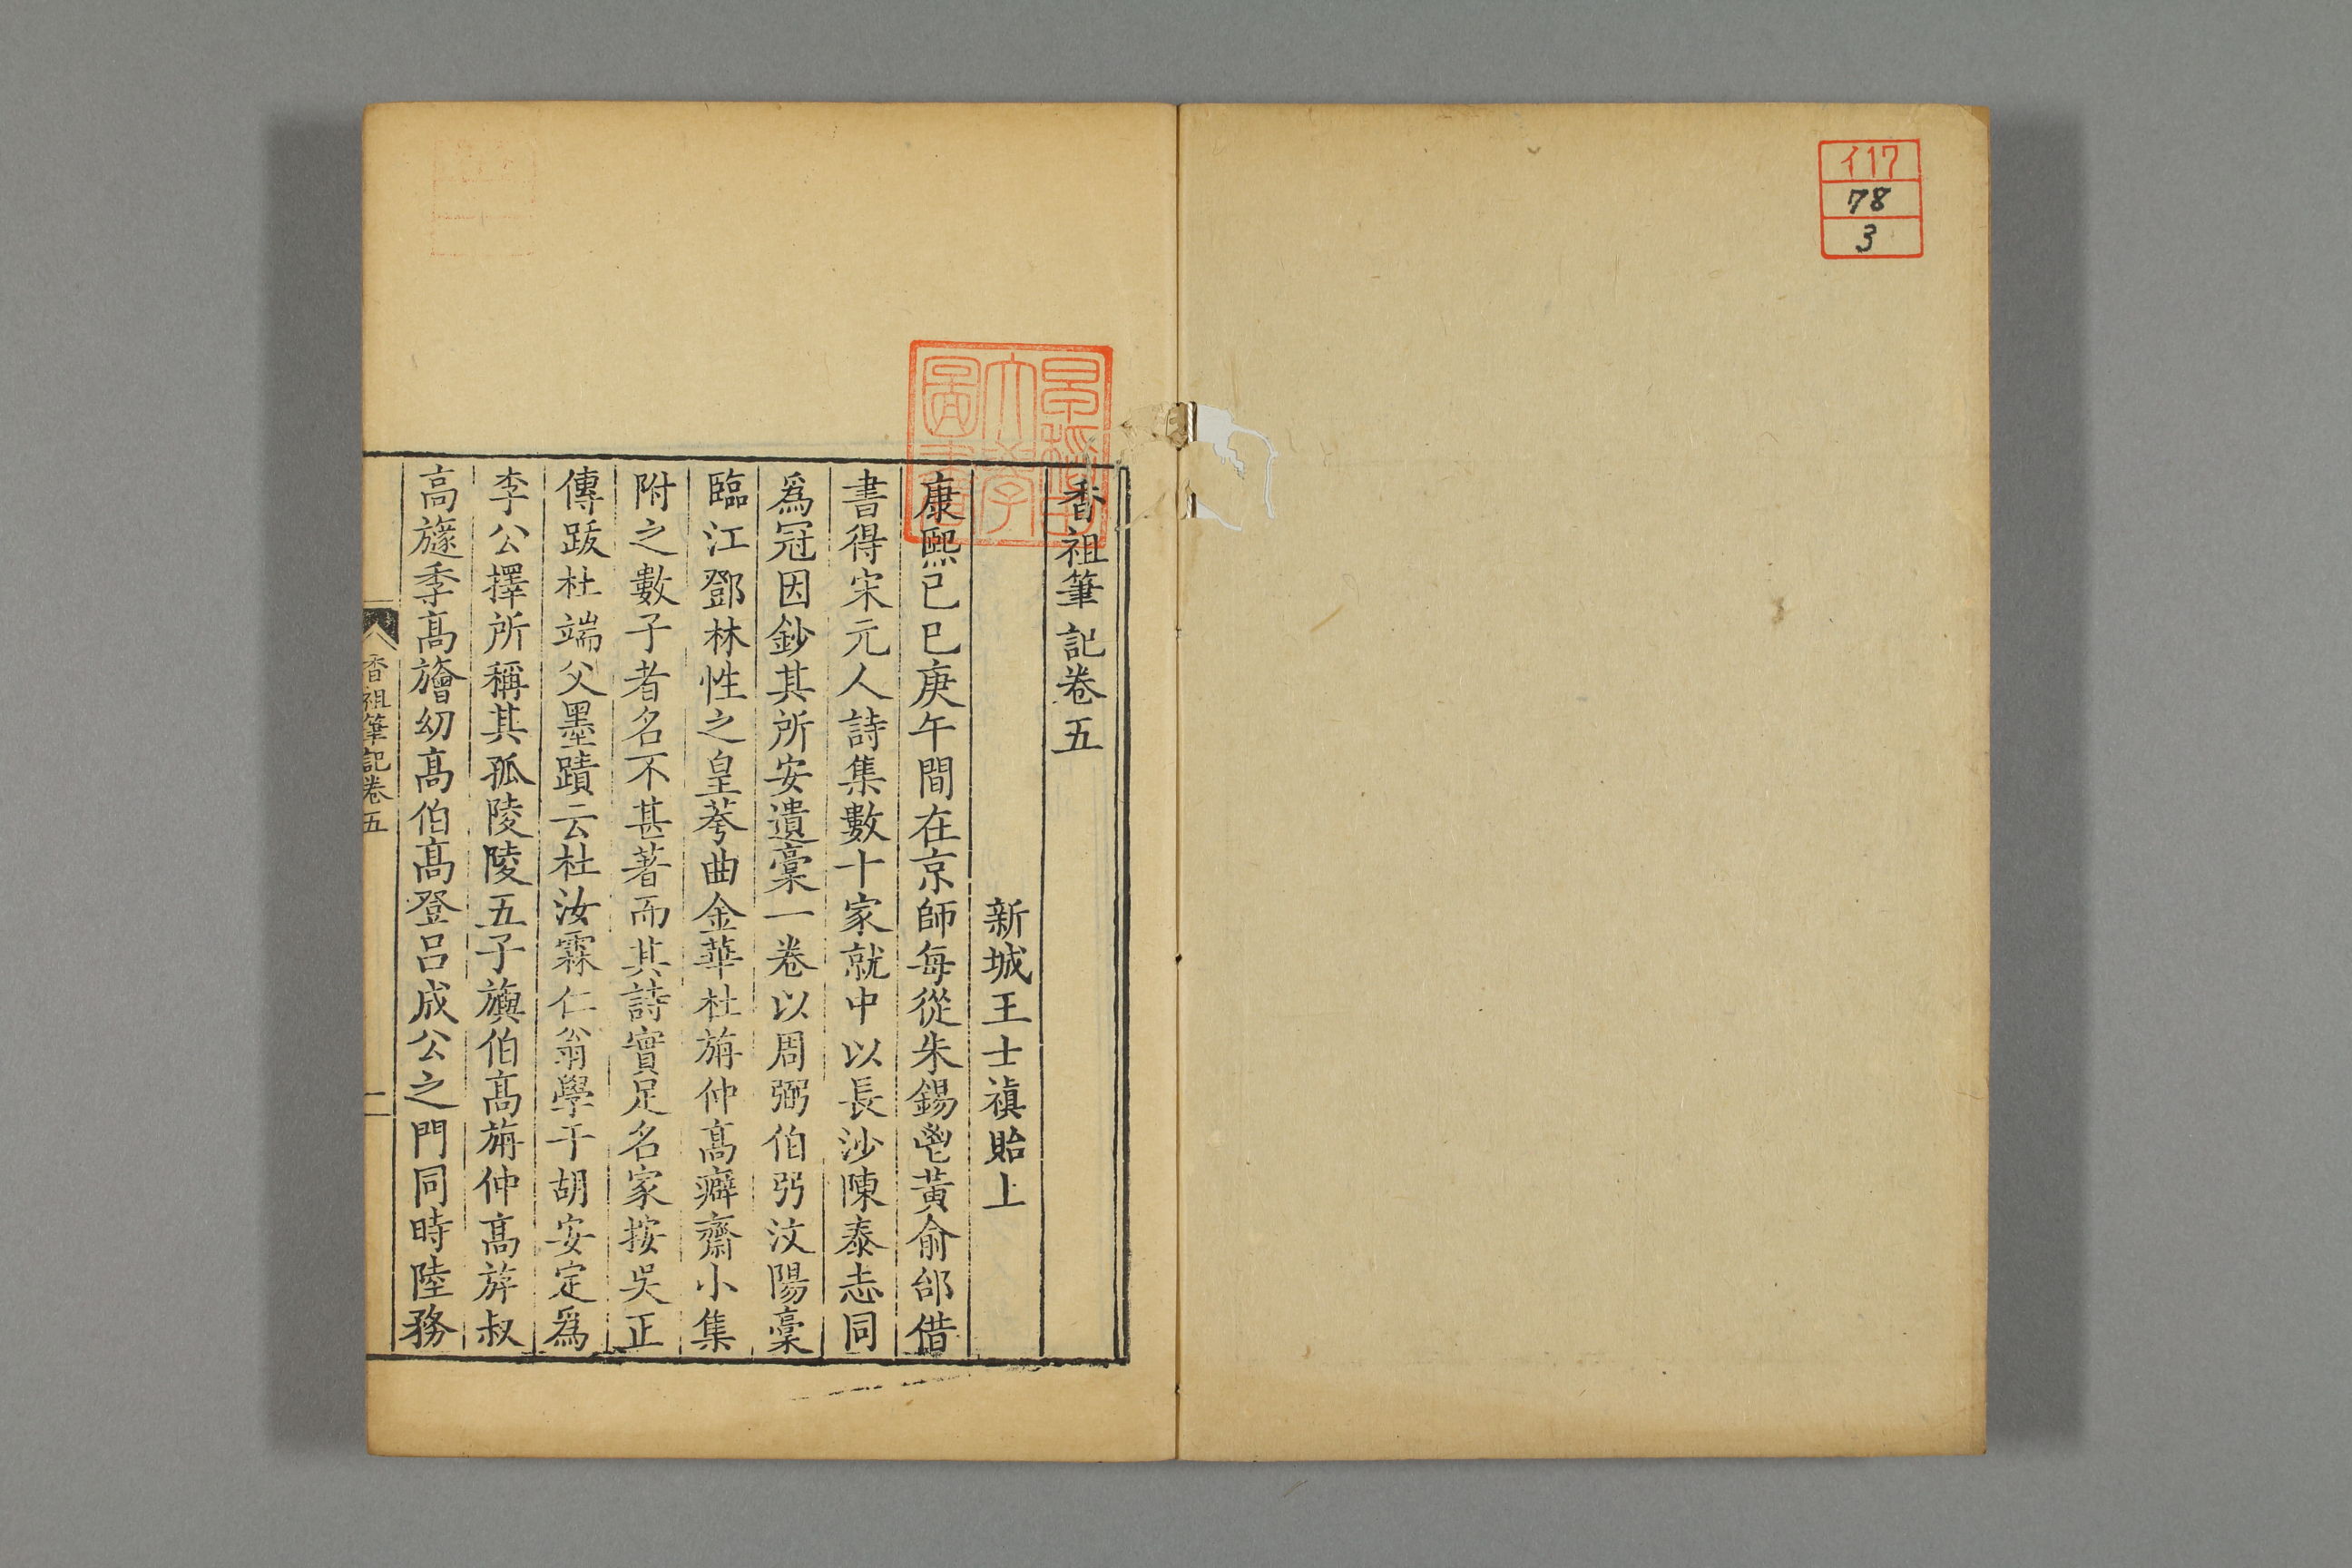 イ17
78
3
早稲田
大學
圖書
香祖筆記卷五
新城王士禛貽上
康熙己巳庚午間在京師每從朱錫鬯黃俞邰借
書得宋元人詩集數十家就中以長沙陳泰志同
爲冠因鈔其所安遺稾一卷以周弼伯弜汶陽稾
臨江鄧林性之皇荂曲金華杜旃仲高癖齋小集
附之數子者名不甚著而其詩實足名家按吳正
傳跋杜端父墨蹟云杜汝霖仁翁學于胡安定爲
李公擇所稱其孤陵陵五子旟伯高旃仲高斿叔
高旞季高旝幼高伯高登呂成公之門同時陸務
香祖筆記卷五
一